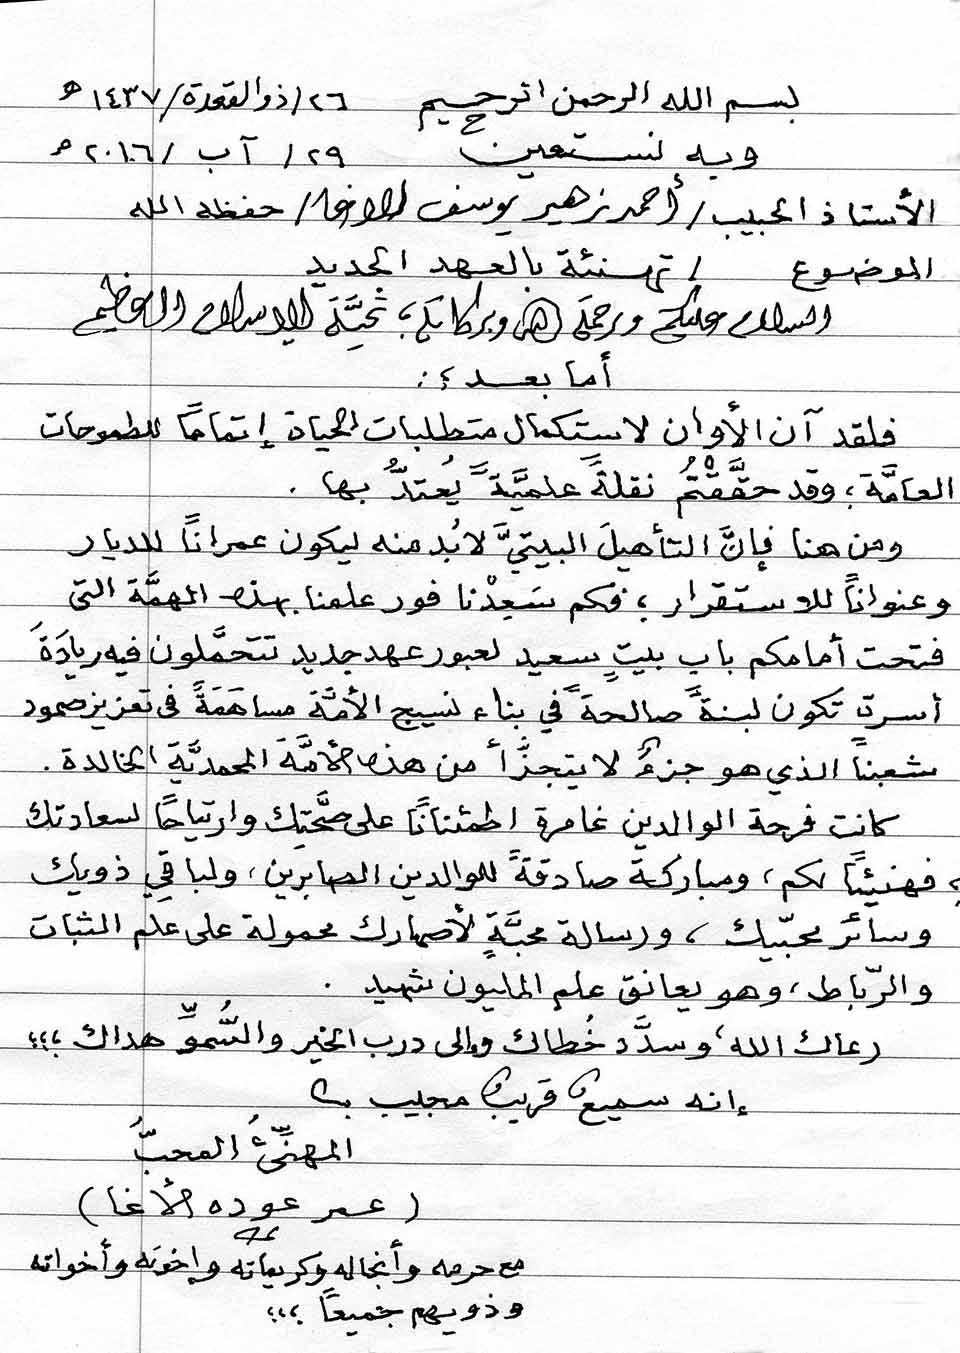 بسم الله الرحمن الرحيم ٢٦/ذو القعدة/١٤٣٧ هـ
وبه نستعين ٢٩/ آب /٢٠١٦ م
الأستاذ الحبيب/ أحمد زهير يوسف الأغا/ حفظه الله
الموضوع / تهنئة بالعهد الجديد
السلام عليكم ورحمة الله وبركاته، تحيَّة الإسلام العظيم
أما بعد ؛:
فلقد آن الأوان لاستكمال متطلبات الحياة إتماماً للطموحات
العامَّة، وقد حقَّقْتُم نقلةً علميَّةً يُعتدُّ بها .
ومن هنا فإنَّ التأهيلَ البيتيَّ لابُد منه ليكون عمراناً للديار
وعنواناً للاستقرار ، فكم سَعِدْنا فور علمنا بهذه المهمَّة التي
فتحت أمامكم باب بيتٍ سعيد لعبور عهد جديد تتحمَّلون فيه ريادَةَ
أسرة تكون لبنةً صالحةً في بناء نسيج الأمَّة مساهَمَةً في تعزيز صمود
شعبنا الذي هو جزءٌ لا يتجزَّأ من هذه الأمَّة المحمديَّة الخالدة .
كانت فرحة الوالدين غامرة اطمئناناً على صحَّتِك وارتياحاً لسعادتك
، فهنيئاً لكم، ومباركة صادقةً للوالدين الصابرين، ولباقي ذويك
وسائر محبّيك ، ورسالة محبَّةٍ لأصهارك محمولة على علم الثبات
والرّباط، وهو يعانق علم المليون شهيد .
رعاك الله، وسدَّد خُطاك وإلى درب الخير والسُّموِّ هداك ،؛؛
إنه سميعٌ قريبٌ مجيب
المهنِّئُ المحبُّ
(عمر عوده الأغا)
مع حرمه وأنجاله وكريماته وإخوته وأخواته
وذويهم جميعاً ،؛؛